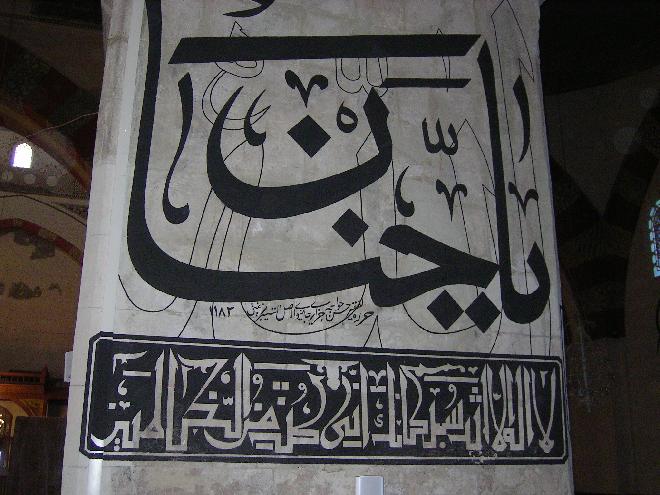 يا حنان
حرره الفقير ١١٨٣
لا اله الا انت سبحانك اني كنت من الظالمين